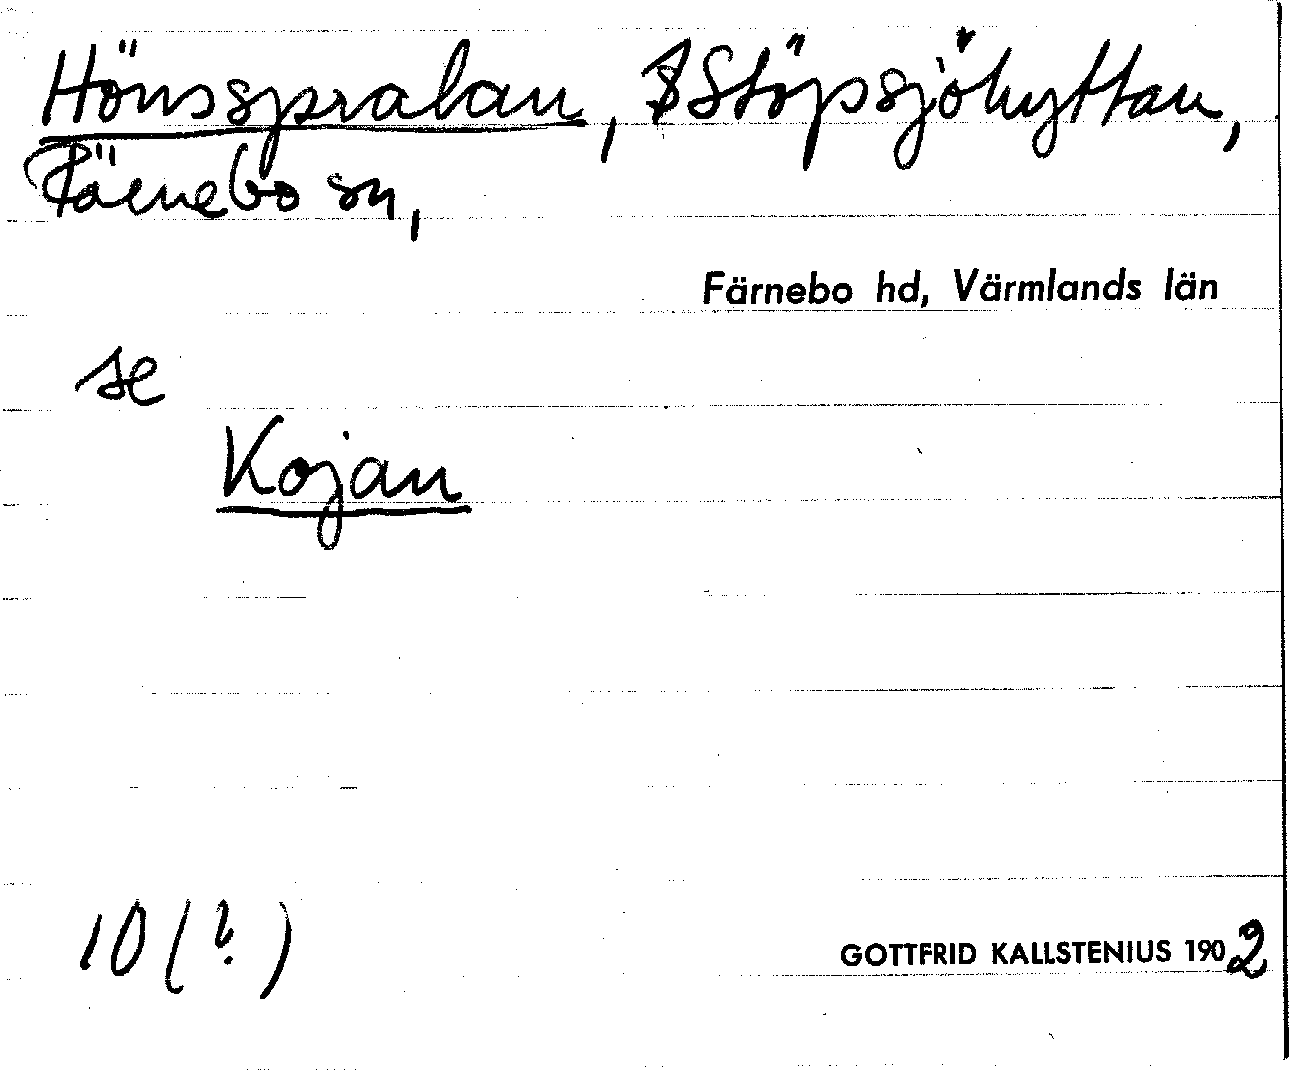 Hönsspralan, Stöpsjöhyttan,
Färnebo sn,
Färnebo hd, Värmlands län
se
Kojan
10 (?)
GOTTFRID KALLSTENIUS 1902